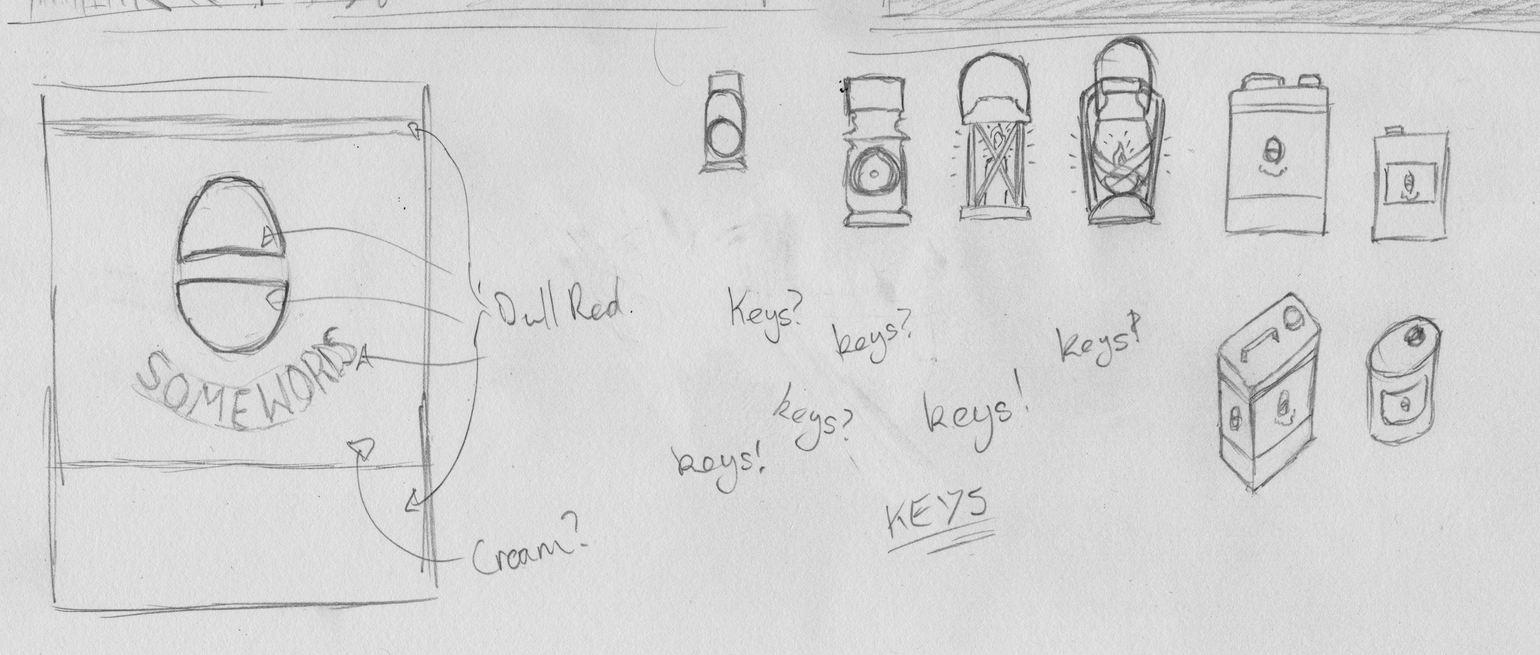 SOMEWORDS
Dull Red.
Cream?
Keys?
keys?
keys?
keys?
keys!
keys!
KEYS